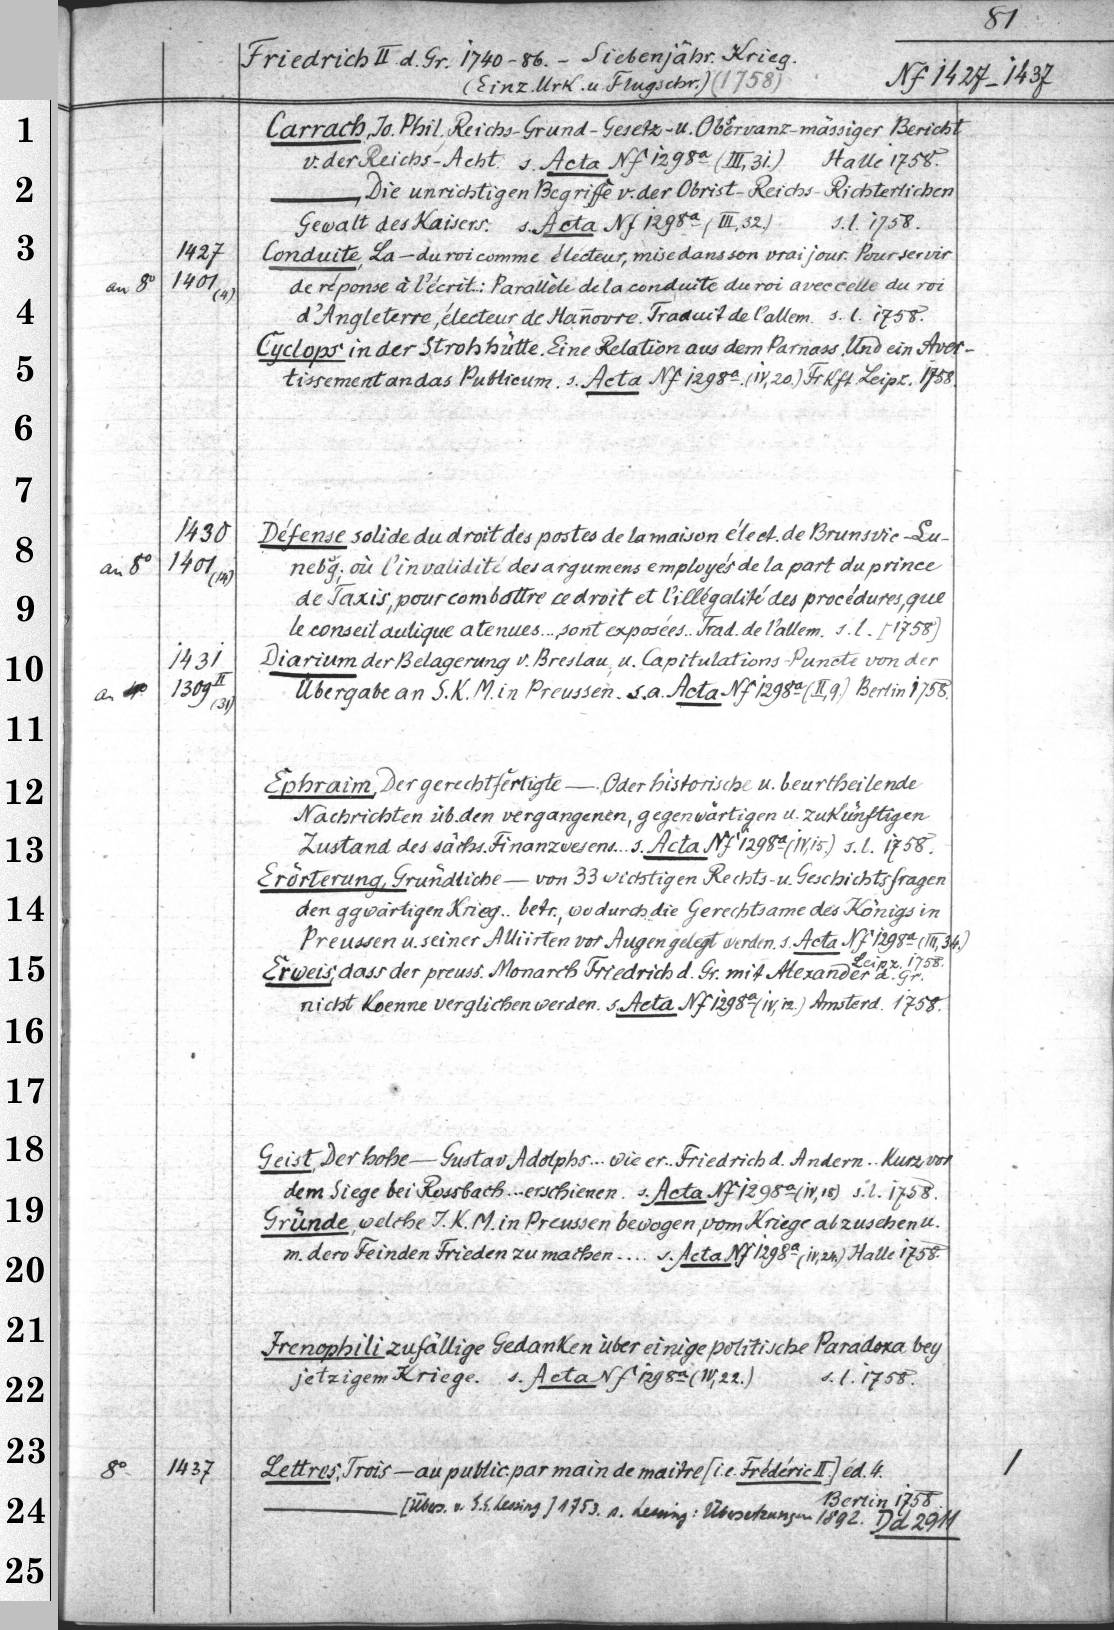 81
Friedrich II d. Gr. 1740-86. - Siebenjähr. Krieg.
(Einz. Urk. u. Flugschr.) (1758)
Nf 1427-1437
1
Carrach, Jo. Phil. Reichs-Grund-Gesetz-u. Observanz-mässiger Bericht
v. der Reichs-Acht. s. Acta Nf 1298a (III, 31.) Halle 1758.
2
———, Die unrichtigen Begriffe v. der Obrist-Reichs-Richterlichen
Gewalt des Kaisers. s. Acta Nf 1298a (III, 32.) s.l. 1758.
3
1427 Conduite, La — du roi comme électeur, mise dans son vrai jour. Pour servir
an 8° 1401 (4) de réponse à l'écrit.: Parallèle de la conduite du roi avec celle du roi
4
d'Angleterre, électeur de Hañovre. Traduit de l'allem. s. l. 1758.
Cyclops in der Strohhütte. Eine Relation aus dem Parnass. Und ein Aver-
5
tissement an das Publicum. s. Acta Nf 1298a (IV, 20.) Frkft. Leipz. 1758.
6
7
1430 Défense solide du droit des postes de la maison élect. de Brunsvic-Lu-
8
an 8° 1401 (14) nebg; où l'invalidité des argumens employés de la part du prince
9
de Taxis, pour combattre ce droit et l'illégalité des procédures, que
le conseil aulique a tenues..., sont exposées. Trad. de l'allem. s. l. [1758]
10
1431 Diarium der Belagerung v. Breslau, u. Capitulations-Puncte von der
an 4° 1309 II (31) Übergabe an S. K. M. in Preussen. s. a. Acta Nf 1298a (II, 9.) Berlin 1758.
11
12
Ephraim, Der gerechtfertigte —. Oder historische u. beurtheilende
Nachrichten üb. den vergangenen, gegenwärtigen u. zukünftigen
13
Zustand des sächs. Finanzwesens... s. Acta Nf 1298a (IV, 15.) s. l. 1758.
Erörterung, Gründliche — von 33 wichtigen Rechts-u. Geschichtsfragen
14
den ggwärtigen Krieg.. betr., wodurch die Gerechtsame des Königs in
Preussen u. seiner Alliirten vor Augen gelegt werden. s. Acta Nf 1298a (III, 34.)
Leipz. 1758.
15
Erweis, dass der preuss. Monarch Friedrich d. Gr. mit Alexander d. Gr.
nicht koenne verglichen werden. s. Acta Nf 1298a (IV, 12.) Amsterd. 1758.
16
17
18
Geist, Der hohe — Gustav Adolphs... wie er.. Friedrich d. Andern.. kurz vor
dem Siege bei Rossbach... erschienen. s. Acta Nf 1298a (IV, 18) s. l. 1758.
19
Gründe, welche I. K. M. in Preussen bewogen, vom Kriege abzusehen u.
m. dero Feinden Frieden zu machen.... s. Acta Nf 1298a (IV, 24.) Halle 1758.
20
21
Irenophili zufällige Gedanken über einige politische Paradoxa bey
22
jetzigem Kriege. s. Acta Nf 1298a (IV, 22.) s. l. 1758.
23
8° 1437 Lettres, Trois — au public par main de maitre [i.e. Frédéric II.] éd. 4. 1
Berlin 1758.
24
——— [Übers. v. G. E. Lessing] 1753. s. Lessing: Übersetzungen 1892. Dd 2911
25